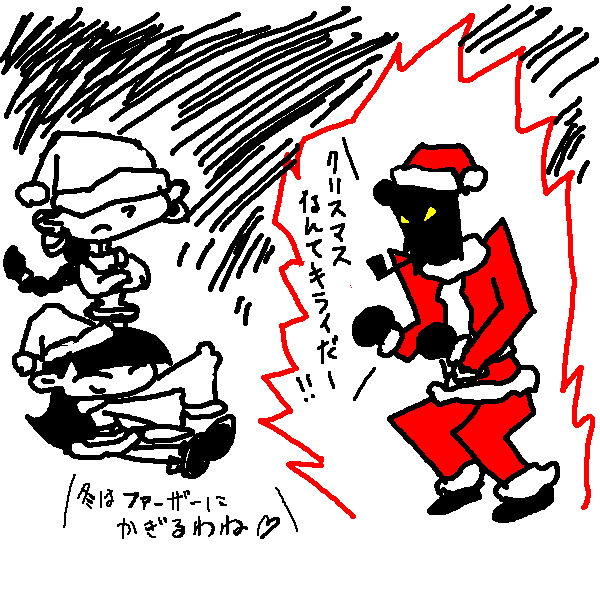 クリスマス
なんてキライだー
!!
冬は ファーザーに
かぎるわね♡